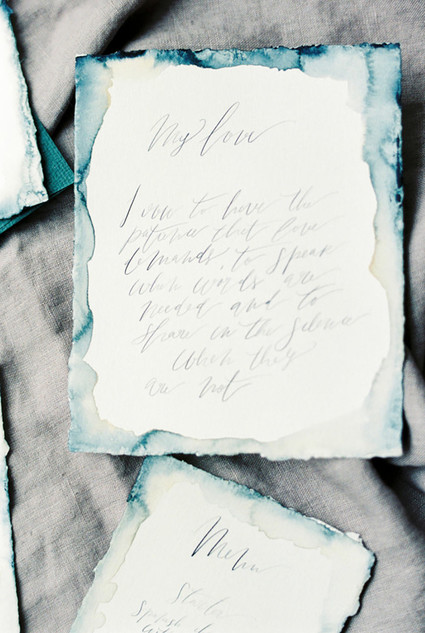 My love
I vow to have the
patience that love
comands, to speak
when words are
needed and to
share in the silence
when they
are not
Menu
Starter